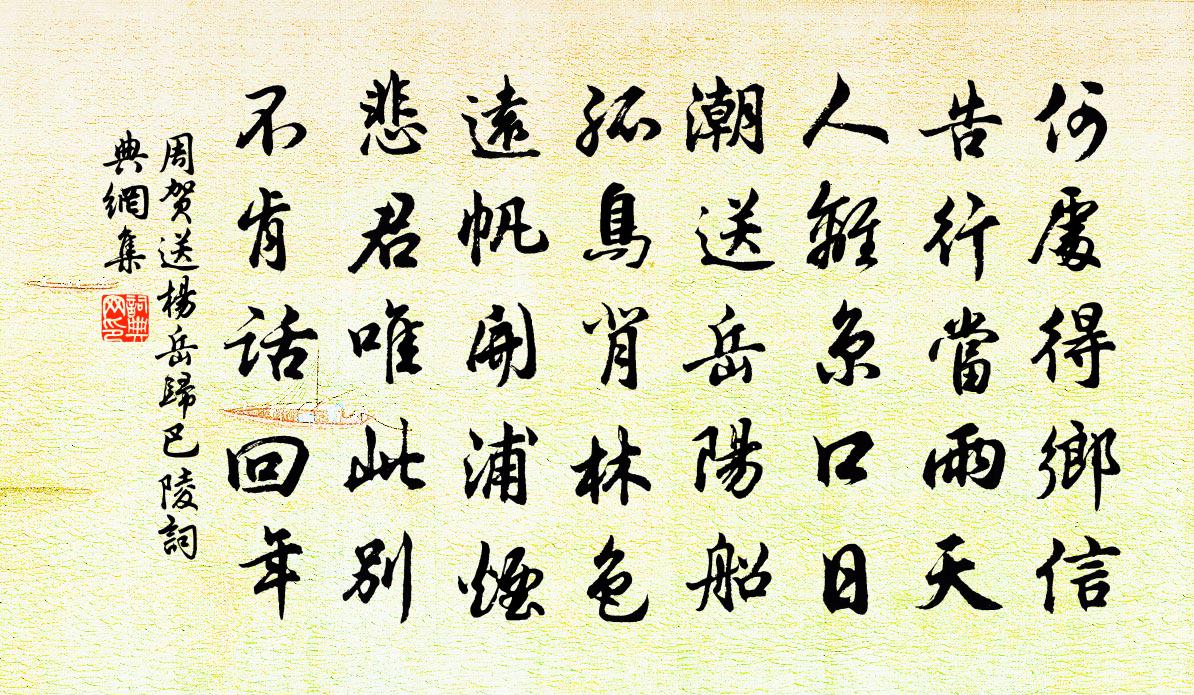 何處得鄉信
告行當雨天
人離京口日
潮送岳陽船
孤鳥背林色
遠帆開浦煙
悲君唯此別
不肯話回年
周贺送楊岳歸巴陵詞
典網集
詞典网印